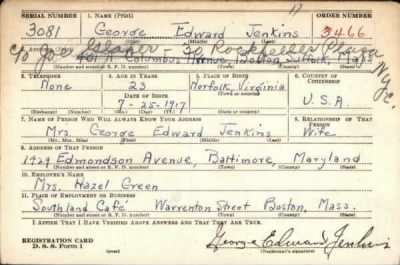 17
SERIAL NUMBER 1. NAME (Print) ORDER NUMBER
3081 George Edward Jenkins 3466
(First) (Middle) (Last)
c/o Joe Glaser - 30 Rockefeller Plaza N.Y.C.
401 Columbus Avenue, Boston, Suffolk, Mass
(Number and street or R. F. D. number) (Town) (County) (State)
3. TELEPHONE 4. AGE IN YEARS 5. PLACE OF BIRTH 6. COUNTRY OF CITIZENSHIP
None 23 Norfolk, Virginia U.S.A.
DATE OF BIRTH
7-25-1917
(Exchange) (Number) (Mo.) (Day) (Yr.) (State or country)
7. NAME OF PERSON WHO WILL ALWAYS KNOW YOUR ADDRESS 8. RELATIONSHIP OF THAT PERSON
Mrs. George Edward Jenkins Wife
(Mr., Mrs., Miss) (First) (Middle) (Last)
9. ADDRESS OF THAT PERSON
1429 Edmondson Avenue, Baltimore, Maryland
(Number and street or R. F. D. number) (Town) (County) (State)
10. EMPLOYER'S NAME
Mrs. Hazel Green
11. PLACE OF EMPLOYMENT OR BUSINESS
Southland Café Warrenton Street Boston, Mass.
(Number and street or R. F. D. number) (Town) (County) (State)
I AFFIRM THAT I HAVE VERIFIED ABOVE ANSWERS AND THAT THEY ARE TRUE.
REGISTRATION CARD
D. S. S. Form 1
(over)
George Edward Jenkins
(Registrant's signature)